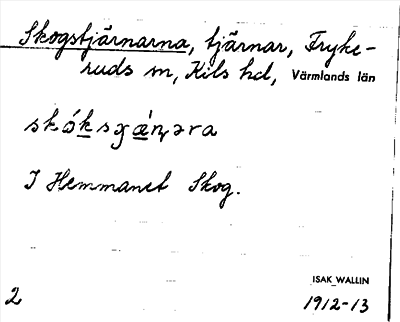 Skogstjärnarna, tjärnar, Fryke-
ruds sn, Kils hd, Värmlands län
skóksʒä́ɳəra
I Hemmanet Skog.
ISAK WALLIN
2 1912-13